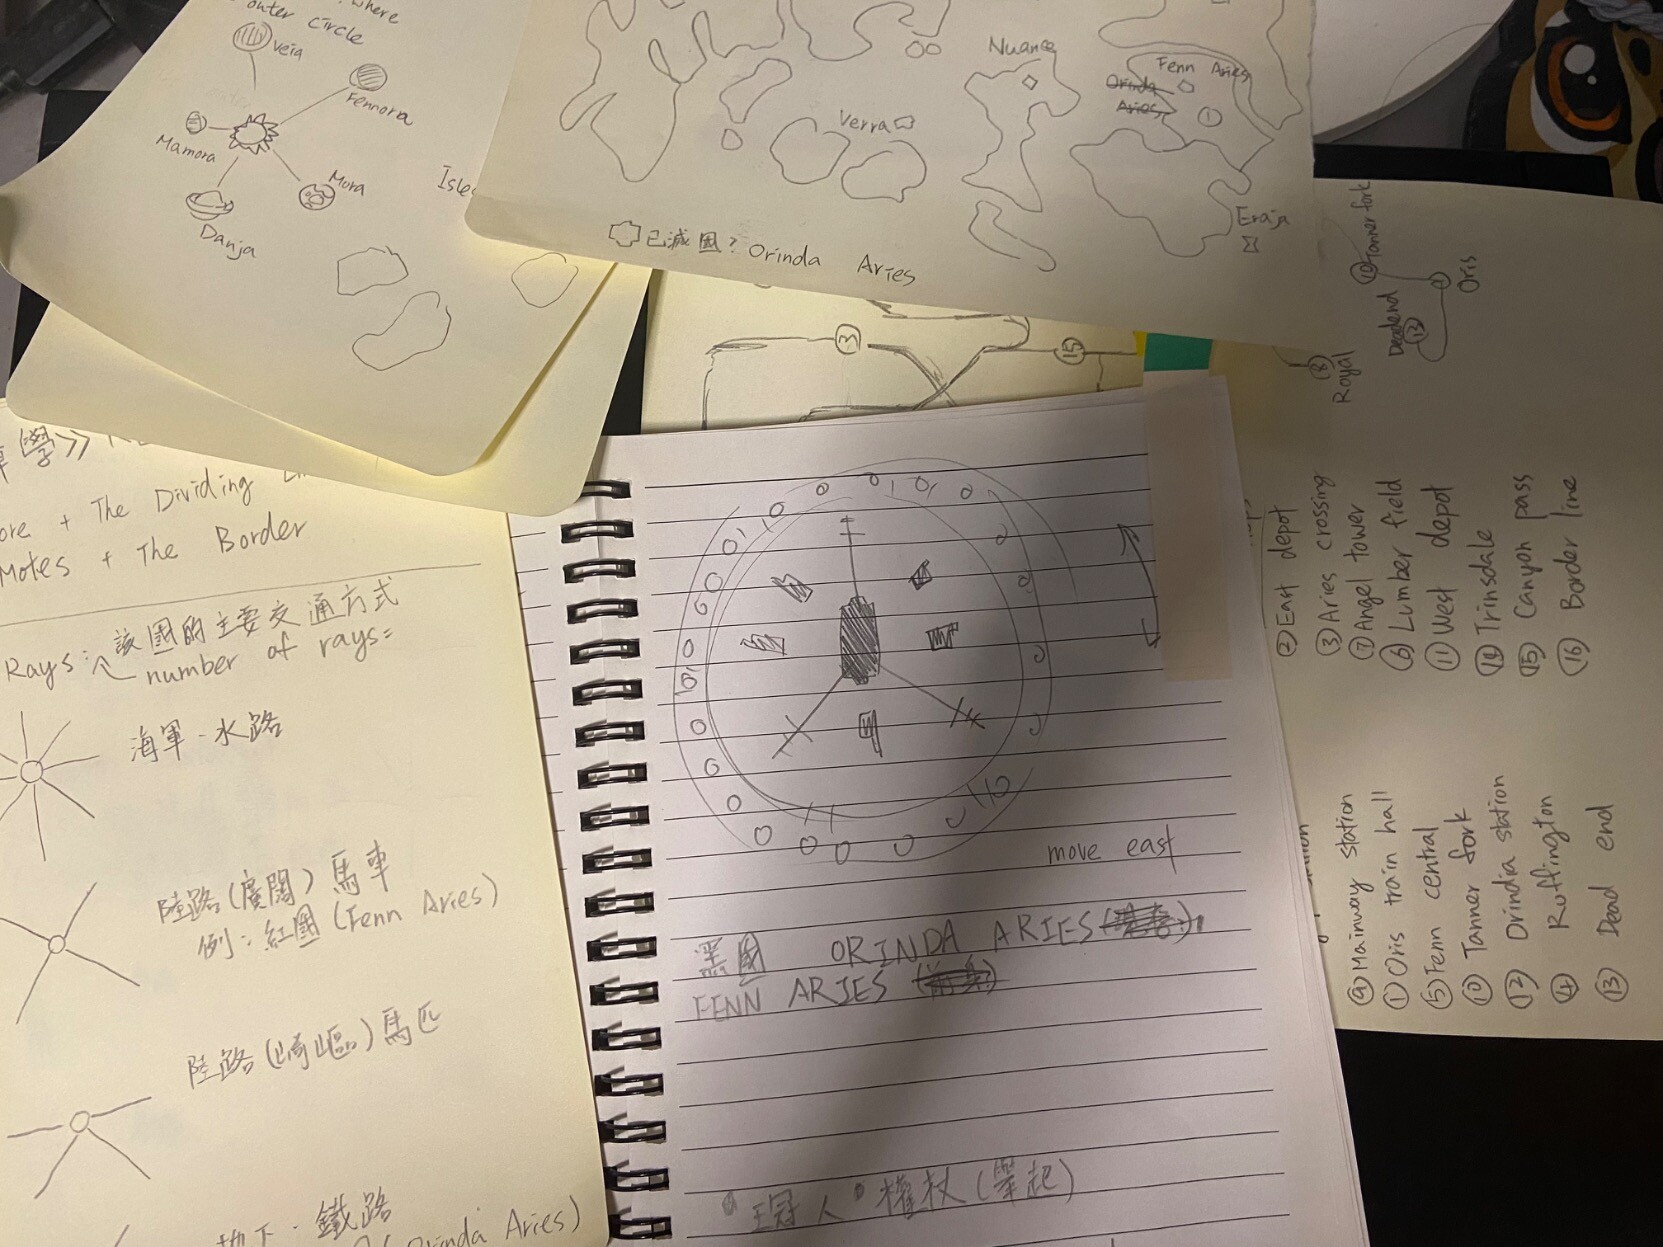 where
outer circle
Veia
Fennora
Mamora
Mora
Danja
Nuance
Fenn Aries
Orinda
Aries
Verra
Eraja
已滅國? Orinda Aries
3
15
學》
+ The Dividing
Motes + The Border
Rays: 該國的主要交通方式
number of rays=
海軍·水路
陸路(廣闊)馬車
例: 紅國(Fenn Aries)
陸路(崎嶇)馬匹
地下·鐵路
Orinda Aries)
move east
黑國 ORINDA ARIES
FENN ARIES
"王冠人"權杖(舉起)
⑩ Tanner fork
① Oris
Deadend
⑬
⑧
Royal
② East depot
③ Aries crossing
⑦ Angel tower
⑥ Lumber field
⑪ West depot
⑭ Trinsdale
⑮ Canyon pass
⑯ Border line
⑨ Mainway station
① Oris train hall
⑤ Fenn central
⑩ Tanner fork
⑫ Orindia station
④ Ruffington
⑬ Dead end